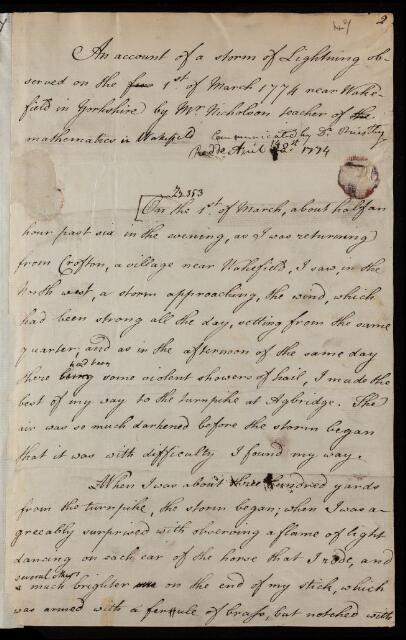 2
An account of a storm of Lightning ob-
served on the 1st of March 1774 near Wake-
field in Yorkshire by Mr Nicholson teacher of the
mathematics in Wakefield Communicated by Dr Priestley
Redde April 1774
353
On the 1st of March, about half an
hour past six in the evening, as I was returning
from Crofton, a village near Wakefield, I saw, in the
North west, a storm approaching, the wind, which
had been strong all the day, setting from the same
quarter, and as in the afternoon of the same day
had been
there being some violent showers of hail, I made the
best of my way to the turnpike at Agbridge. The
air was so much darkened before the storm began
that it was with difficulty I found my way.
When I was about three hundred yards
from the turnpike, the storm began; when I was a-
greeably surprised with observing a flame of light
dancing on each ear of the horse that I rode, and
several others
much brighter on the end of my stick, which
was armed with a ferrule of brass, but notched with